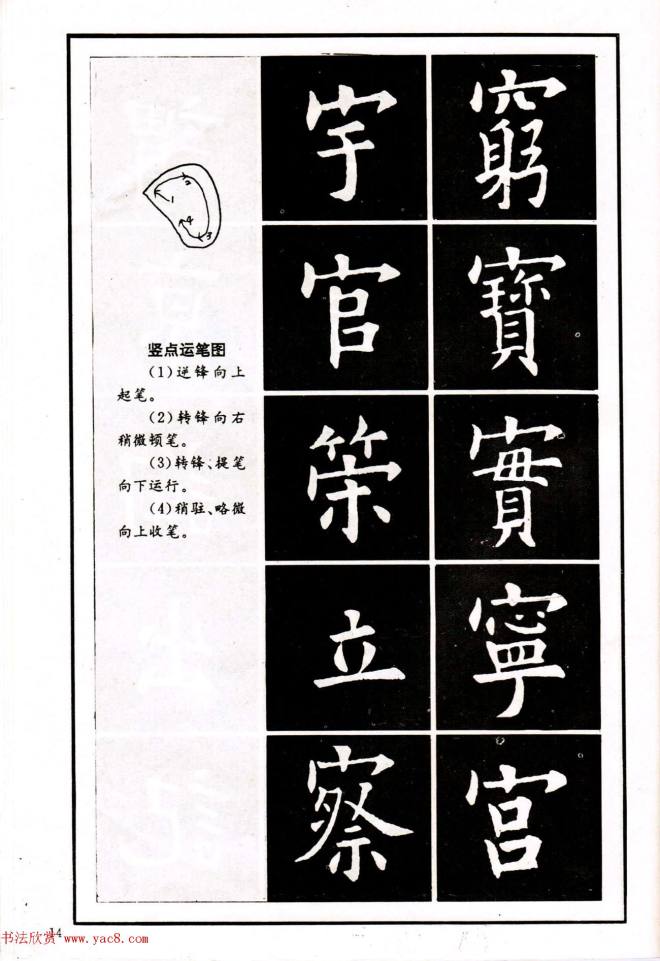 窮
寶
實
寧
宮
宇
官
策
立
察
1
2
3
4
竖点运笔图
(1)逆锋向上
起笔。
(2)转锋向右
稍微顿笔。
(3)转锋、提笔
向下运行。
(4)稍驻、略微
向上收笔。
14
书法欣赏 www.yac8.com